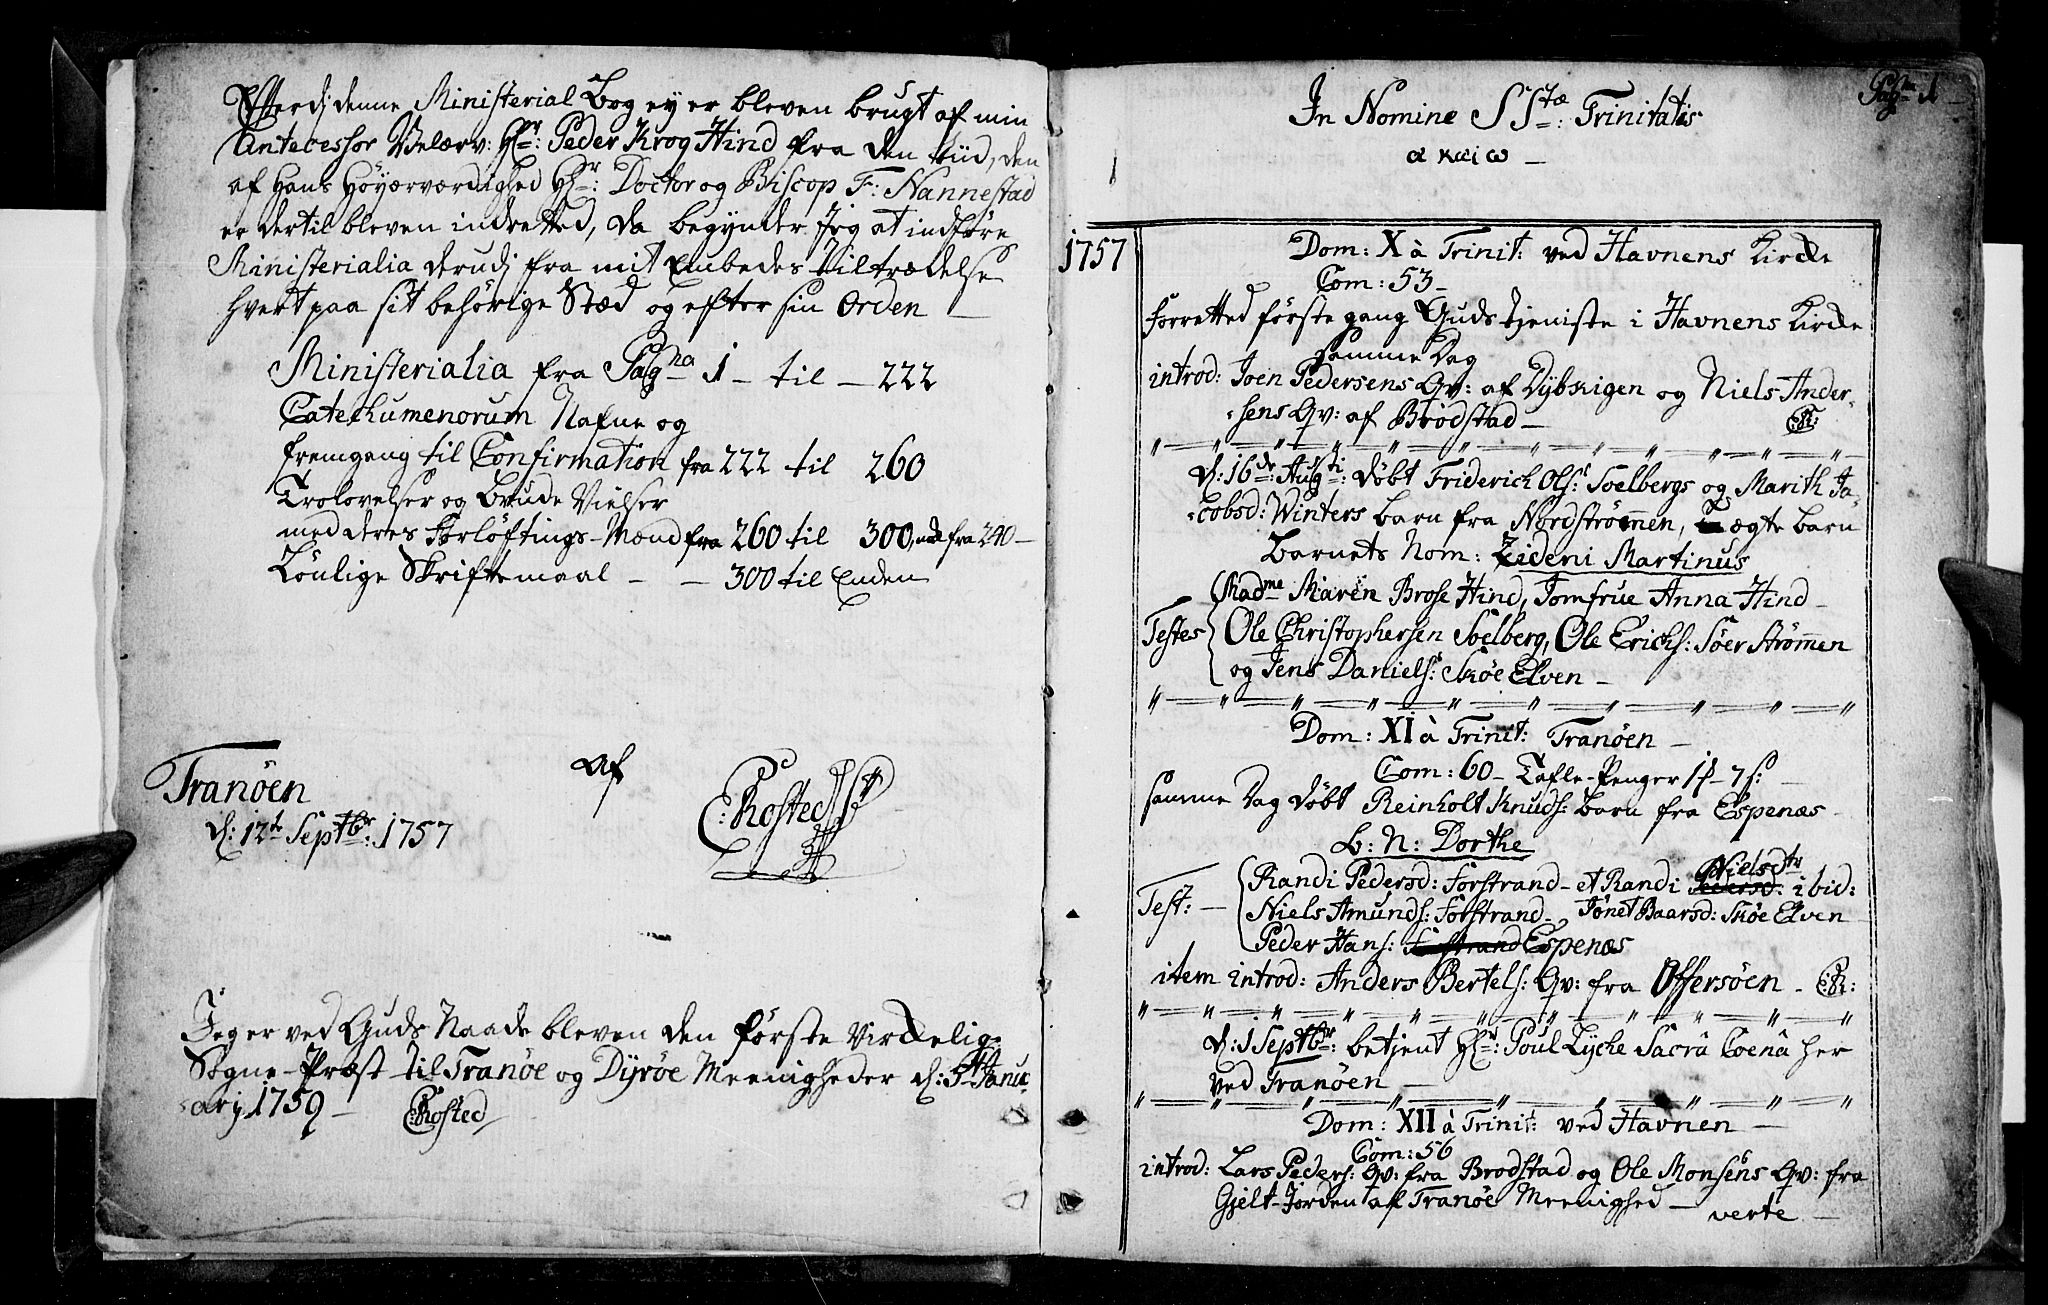 Efterdj denne Ministerial Bog ey er bleven brugt af min
Antecessor Velærv: Hr: Peder Krog Hind fra den tiid, den
af Hans Höyærværdighed Hr: Doctor og Biscop F: Nannestad
er dertil bleven indretted, da begynder Jeg at indföre
Ministerialia derudj fra mit Embedes Tiltrædelse
hvert paa sit behörige Stæd og efter sin Orden —
Ministerialia fra Pagna 1 — til — 222
Catechumenorum Nafne og
fremgang til Confirmation fra 222 til 260
Trolovelser og Brude Vielser
med deres Forlöftings-Mænd fra 260 til 300, fra 240 —
Lönlige Skriftemaal — — 300 til Enden
Tranöen af
d: 12te Septbr: 1757 E: Rosted
Jeg er ved Guds Naade bleven den förste Virkelig
Sogne-Præst til Tranöe og Dyröe Meenigheder d: 5te Janu-
arij 1759 — ERosted
Pagna 1
In Nomine SStæ: Trinitatis
α και ω —
1757
Dom: X à Trinit: ved Havnens Kirke
Com: 53 —
forretted förste gang Guds tjeniste i Havnens Kirke
samme Dag
introd: Joen Pedersens Qv: af Dybvigen og Niels Ander-
sens Qv: af Brödstad — ER:
d: 16de: Augti: döbt Friderich Ols: Soelbergs og Marith Ja-
cobsd: Winters barn fra Nordströmen, ægte barn
Barnets Nom: Zideni Martinus
Testes Madme Maren Brose Hind, Jomfrue Anna Hind —
Ole Christophersen Soelberg, Ole Erichs: Söer Strömen
og Jens Daniels: Sköe Elven —
Dom: XI à Trinit: Tranöen —
Com: 60 — Tafle-Penger 1ʃ — 7 s: —
samme Dag döbt Reinholt Knuds: barn fra Espenæs —
B: N: Dorthe
Test: — Randi Pedersd: Forstrand — et Randi Pedersd: Nielsdtr ibid:
Niels Amunds: Forstrand —, Jönet Baarsd: Sköe Elven
Peder Hans: Forstrand Espenæs
item introd: Anders Bertels: Qv: fra Offersöen — ER:
d: 1 Septbr: betjent Hr: Poul Lyche Sacrâ Coenâ her
ved Tranöen —
Dom: XII à Trinit: ved Havnen —
Com: 56
introd: Lars Peders: Qv: fra Brodstad og Ole Monsens Qv: fra
Gjelt-Jorden af Tranöe Meenighed —
verte —